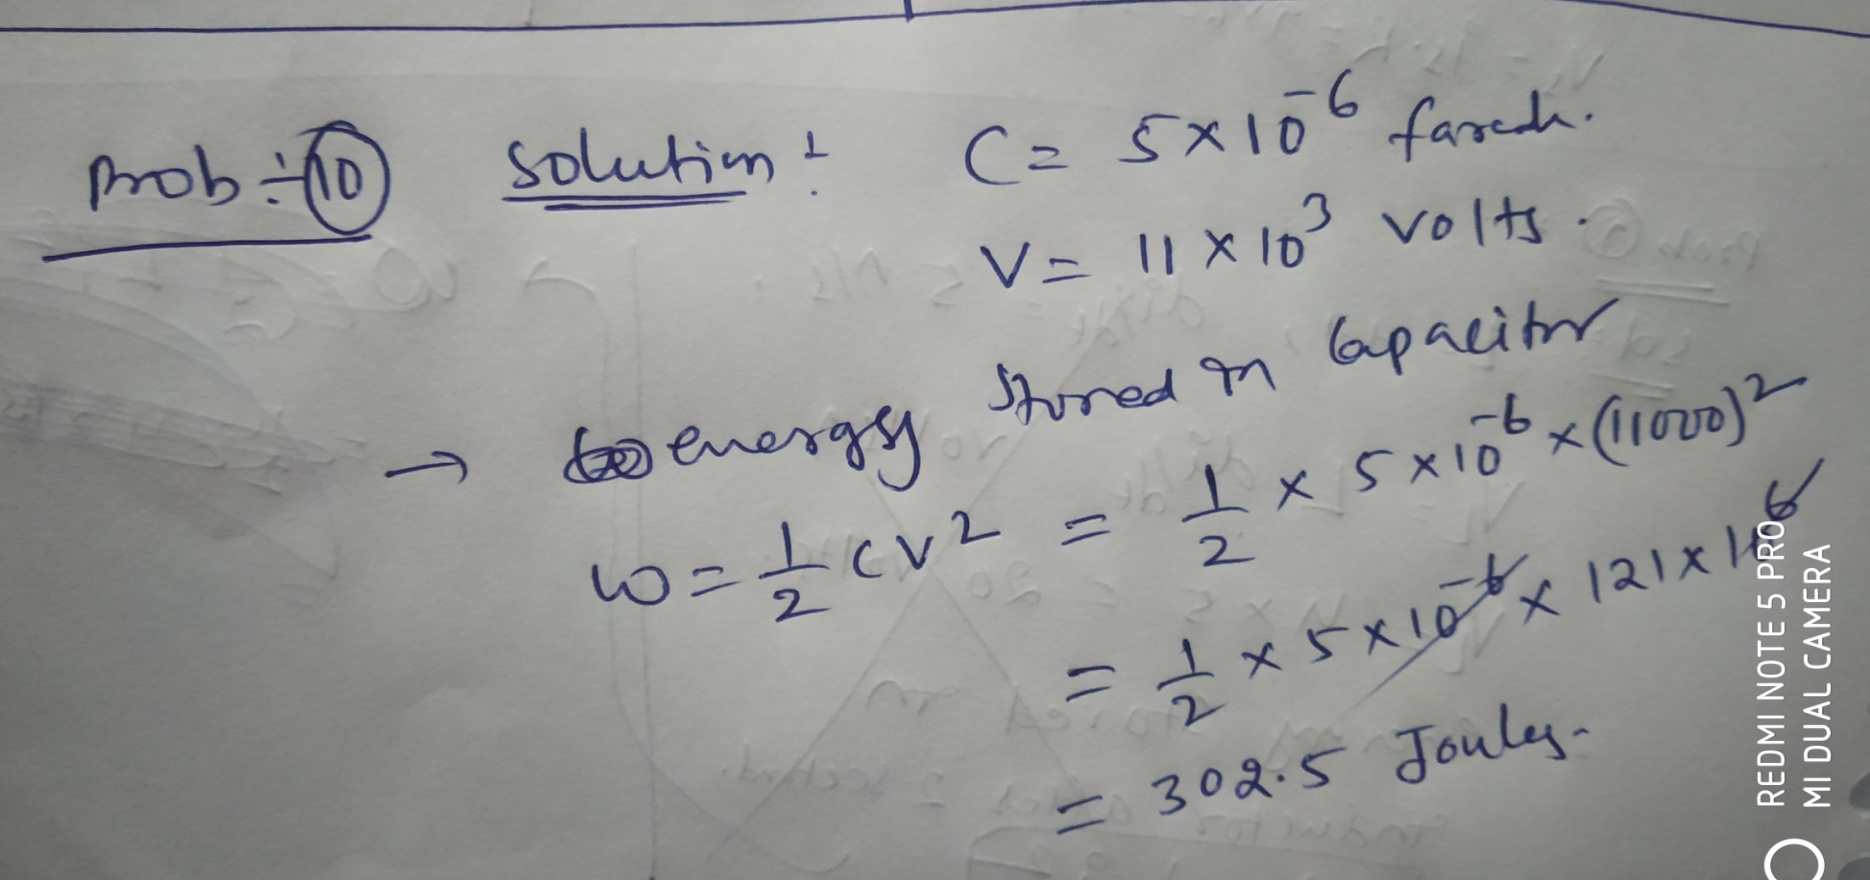 Prob ÷ 10 Solution : C = 5 × 10⁻⁶ farad.
V = 11 × 10³ volts.
→ energy stored in Capacitor
W = 1/2 CV² = 1/2 × 5 × 10⁻⁶ × (11000)²
= 1/2 × 5 × 10⁻⁶ × 121 × 10⁶
= 302.5 Joules.
REDMI NOTE 5 PRO
MI DUAL CAMERA